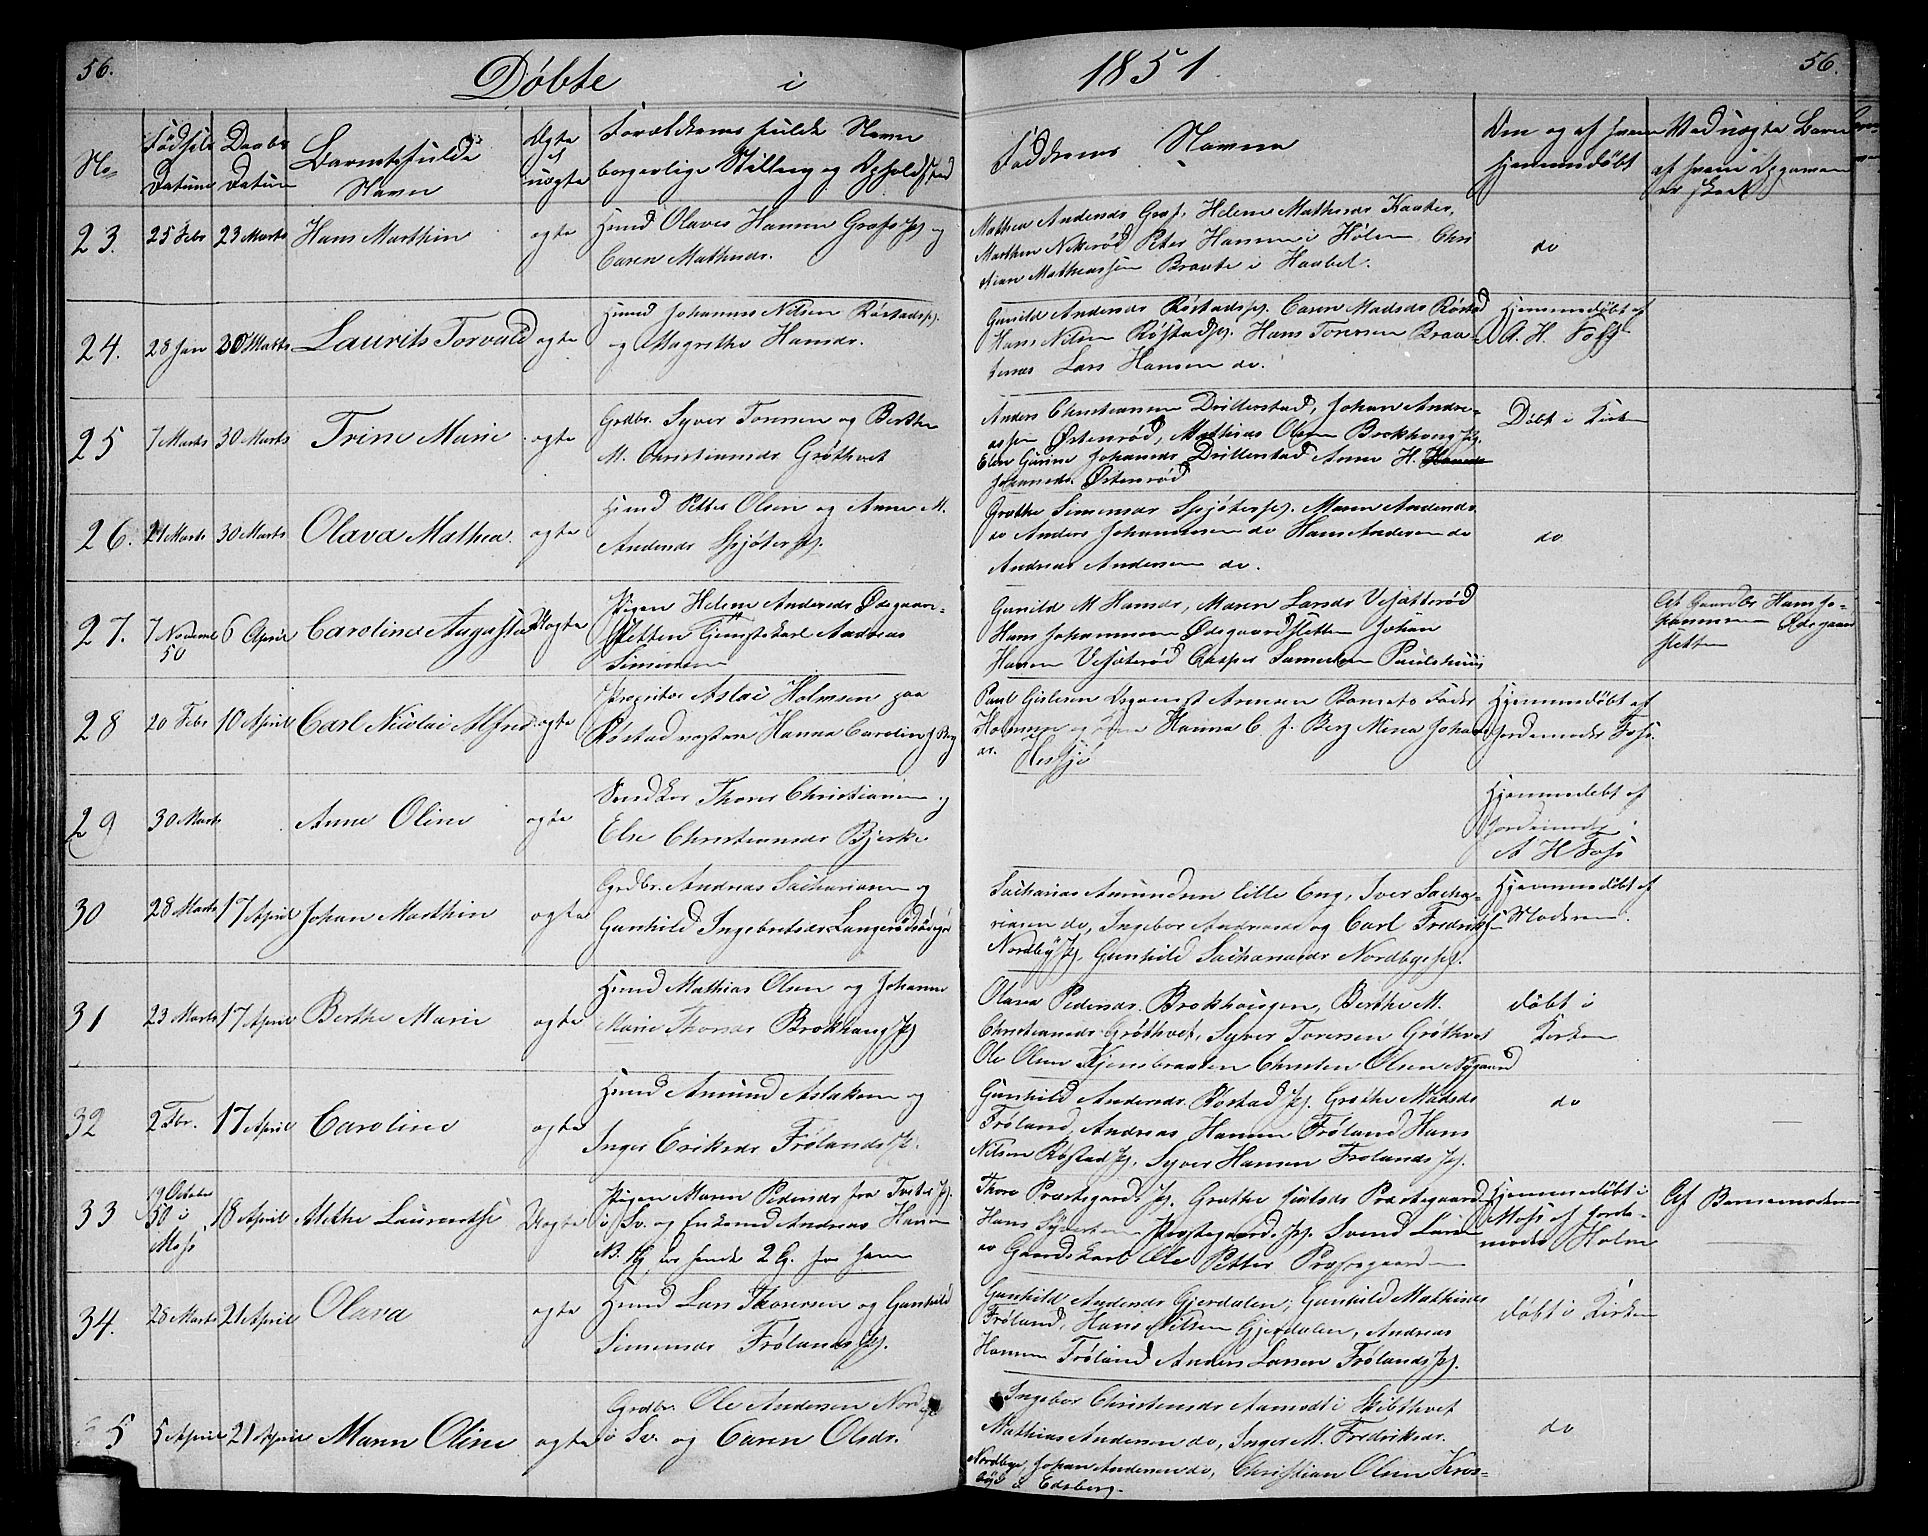 56.
Døbte i 1851.
56.
No
Fødsels Datum
Daabs Datum
Barnets fulde Navn
Ægte el uægte
Forældrenes fulde Navn borgerlige Stilling og Opholdssted
Faddrenes Navne
Om og af hvem hjemmedøbt
Ved uægte Børn af hvem Opgaven er skeet
23. 25 Febr 23 Marts Hans Marthin ægte
Huusmd Olaves Hansen
Caren Mathisdr.
Mathea Andersdr Helene Mathisdr
Marthin Peter Hansen i Hølen Chri
stian Mathiassen Braate i Haabøl.
do
24. 28 Jan 30 Marts Laurits Torvald ægte
Huusmd Johannes Nilsen Røstadspj.
og Magrethe Hansdr.
Gunild Andersdr Røstadspj. Caren Madsdr Røstad
Hans Nilsen Røstadspj. Hans Toresen Braa-
tenes Lars Hansen do.
Hjemmedøbt af
A. H. Foss
25 7 Marts 30 Marts Trine Marie ægte
Grdbr. Syver Toresen og Berthe
M. Christiansdr Grøthvet
Anders Christiansen Drillerstad, Johan Andre-
assen Østenrød, Mathias Olsen Brokhougspj.
Elen Gurine Johansdr Drillerstad Anne H.
Johansdr. Østenrød
Døbt i Kirken
26. 21 Marts 30 Marts Olava Mathea. ægte
Huusmd Petter Olsen og Anne M.
Andersdr Spjøterspj.
Grethe Simensdr Spjøterspj. Maren Andersdr.
do Anders Johannessen do Hans Andersen do
Andreas Andersen do.
do
27. 7 Novemb 50 6 April Caroline Augusta Uægte
Pigen Helene Andersdr Ødegaard-
sletten Tjenestekarl Andreas
Simensen
Gunild M Hansdr, Maren Larsdr
Hans Johannessen Ødegaardsletten Johan
Hansen Casper Samuelsen Paulshuus
Af Gaardbr Hans Jo-
hannessen Ødegaard
sletten
28 20 Febr 10 April Carl Nicolai Alfred ægte
Aslac Holmsen paa
Røstad og Hustru Hanna Caroline J Berg
Paul Gislesen Organist Barnets Fader
Holmsen og Hanna C. J. Berg Mina Johan
Hjemmedøbt af
Jordemoder Foss.
29 30 Marts Anne Oline ægte
Thorer Christiansen og
Else Christiansdr Bjerke
Hjemmedøbt af
Jordemoder
A H Foss
30 28 Marts 17 April Johan Marthin ægte
Grdbr. Andreas Sachariasen og
Gunhild Ingebretsdr
Sacharias Amundsen Lille Eng, Iver Sacha-
riasen do, Ingebor Andreasdr og Carl Fredriks
Nordbyspj, Gunhild Sachariasdr Nordbyespj.
Hjemmedøbt af
Moderen.
31 23 Marts 17 April Berthe Marie ægte
Huusmd Mathias Olsen og Johanne
Marie Thorsdr Brokhougspj
Olava Pedersdr Brokhougen, Berthe M.
Christiansdr Grøthvet, Syver Toresen Grøthvet
Ole Olsen Kjensbraaten Christen Olsen Nygaard
døbt i
Kirken
32 2 Fbr. 17 April Caroline ægte
Huusmd Amund Aslaksen og
Inger Eriksdr Frølandspj.
Gunhild Andersdr. Røstadspj. Grethe Madsdr
Frøland, Andreas Hansen Frøland Hans
Nilsen Røstadspj, Syver Hansen Frølandspj.
do
33 19 October 50 i Moss 18 April Mathe Laurentse Uægte
Pigen Maren Pedersdr fra
i Sv. og Enkemd Andreas Hansen
Thore Præstegaardspj, Grethe Præstegaard
Hans Præstegaardspj. Svend Larsen
Gaardskarl Ole Petter Præstegaarden
Hjemmedøbt i
Moss af Jorde-
moder Holm
Af Barnemoderen
34. 28 Marts 21 April Olava ægte
Huusmd Lars Thoresen og Gunhild
Simensdr Frølandspj.
Gunhild Andersdr Gjerdalen, Gunhild Mathisdr
Frøland, Hans Nilsen Gjerdalen, Andreas
Hansen Frøland Anders Larsen Frølandspj.
døbt i Kirken
35 5 April 21 April Maren Oline ægte
Grdbr. Ole Andersen Nordbye
i Sv. og Caren Olsdr.
Ingebor Christensdr Aamodt i Skibthvet
Mathias Andersen do, Inger M. Fredriksdr.
Nordbye, Johan Andersen do, Christian Olsen Kros-
bye i Edsberg.
do